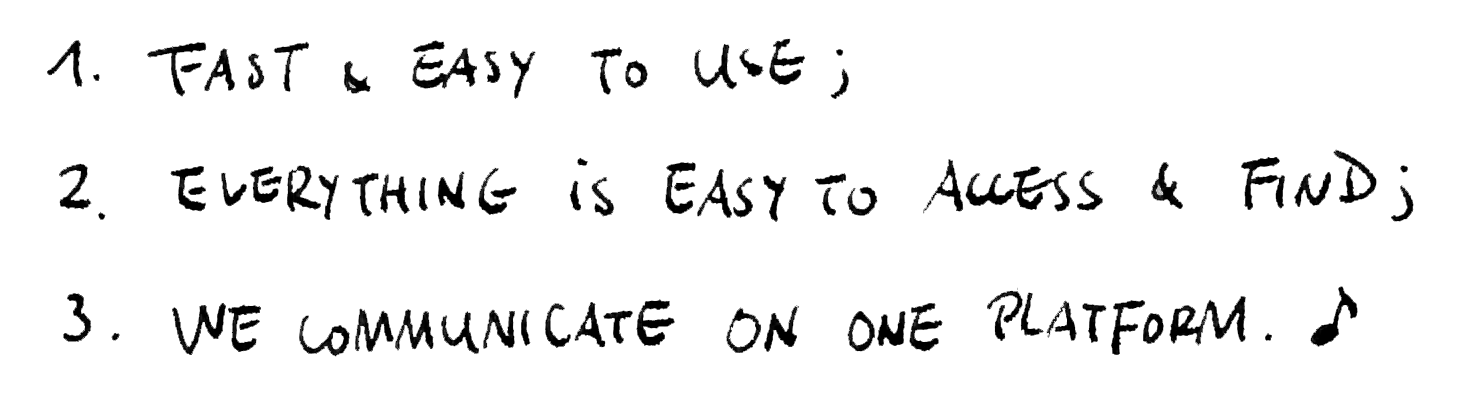 1. FAST & EASY TO USE;
2. EVERYTHING is EASY TO ACCESS & FIND;
3. WE COMMUNICATE ON ONE PLATFORM. ♪